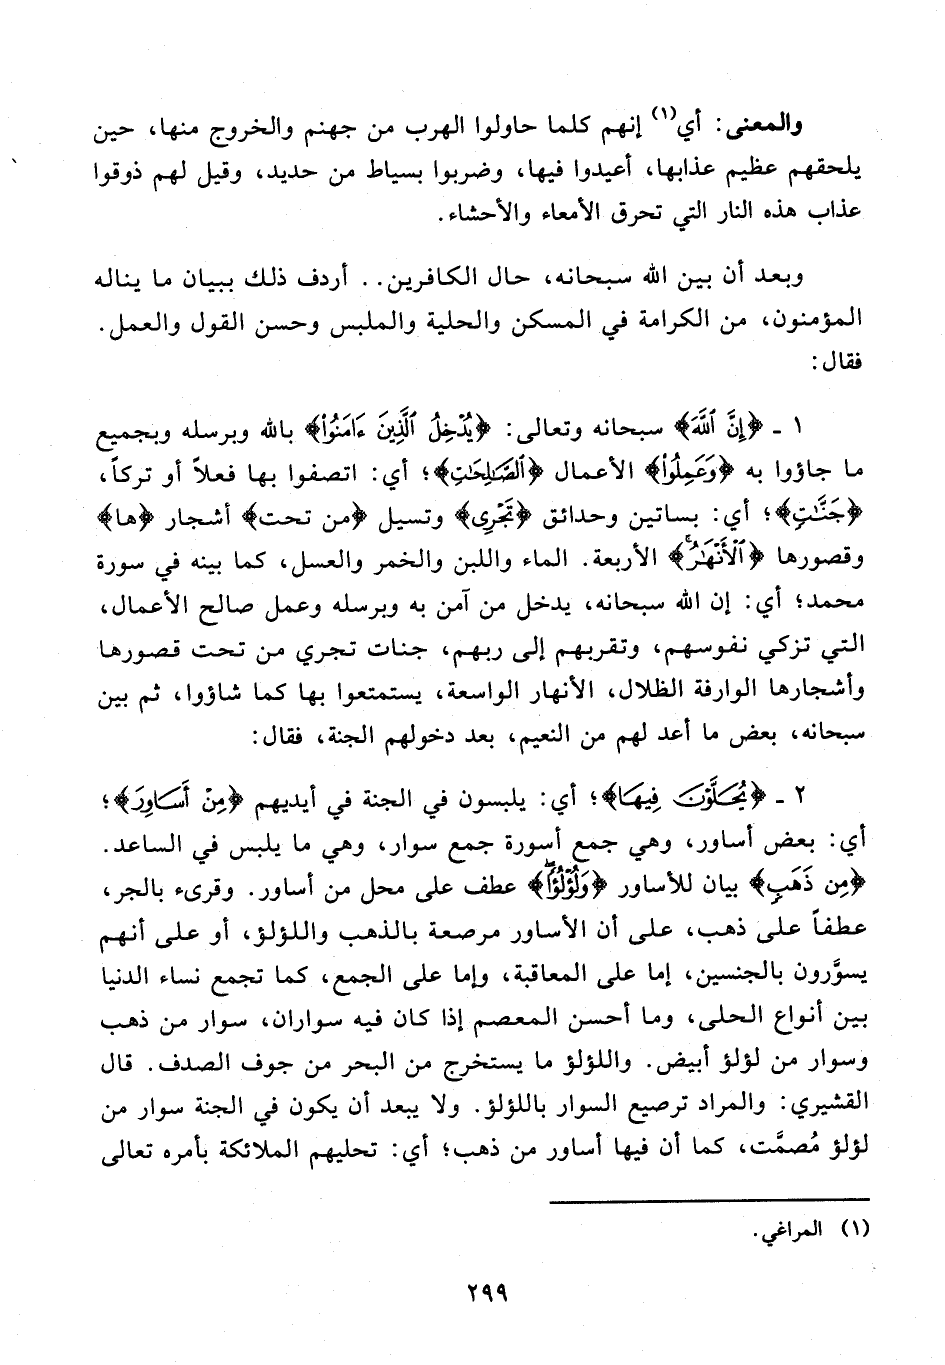 والمعنى: أي(١) إنهم كلما حاولوا الهرب من جهنم والخروج منها، حين
يلحقهم عظيم عذابها، أعيدوا فيها، وضربوا بسياط من حديد، وقيل لهم ذوقوا
عذاب هذه النار التي تحرق الأمعاء والأحشاء.
وبعد أن بين الله سبحانه، حال الكافرين.. أردف ذلك ببيان ما يناله
المؤمنون، من الكرامة في المسكن والحلية والملبس وحسن القول والعمل.
فقال:
١ - ﴿إِنَّ ٱللَّهَ﴾ سبحانه وتعالى: ﴿يُدْخِلُ ٱلَّذِينَ ءَامَنُوا۟﴾ بالله وبرسله وبجميع
ما جاؤوا به ﴿وَعَمِلُوا۟﴾ الأعمال ﴿ٱلصَّـٰلِحَـٰتِ﴾؛ أي: اتصفوا بها فعلاً أو تركاً،
﴿جَنَّـٰتٍ﴾؛ أي: بساتين وحدائق ﴿تَجْرِى﴾ وتسيل ﴿من تحت﴾ أشجار ﴿ها﴾
وقصورها ﴿ٱلْأَنْهَـٰرُ﴾ الأربعة. الماء واللبن والخمر والعسل، كما بينه في سورة
محمد؛ أي: إن الله سبحانه، يدخل من آمن به وبرسله وعمل صالح الأعمال،
التي تزكي نفوسهم، وتقربهم إلى ربهم، جنات تجري من تحت قصورها
وأشجارها الوارفة الظلال، الأنهار الواسعة، يستمتعوا بها كما شاؤوا، ثم بين
سبحانه، بعض ما أعد لهم من النعيم، بعد دخولهم الجنة، فقال:
٢ - ﴿يُحَلَّوْنَ فِيهَا﴾؛ أي: يلبسون في الجنة في أيديهم ﴿مِنْ أَسَاوِرَ﴾؛
أي: بعض أساور، وهي جمع أسورة جمع سوار، وهي ما يلبس في الساعد.
﴿مِن ذَهَبٍ﴾ بيان للأساور ﴿وَلُؤْلُؤًا﴾ عطف على محل من أساور. وقرىء بالجر،
عطفاً على ذهب، على أن الأساور مرصعة بالذهب واللؤلؤ، أو على أنهم
يسوَّرون بالجنسين، إما على المعاقبة، وإما على الجمع، كما تجمع نساء الدنيا
بين أنواع الحلى، وما أحسن المعصم إذا كان فيه سواران، سوار من ذهب
وسوار من لؤلؤ أبيض. واللؤلؤ ما يستخرج من البحر من جوف الصدف. قال
القشيري: والمراد ترصيع السوار باللؤلؤ. ولا يبعد أن يكون في الجنة سوار من
لؤلؤ مُصمَّت، كما أن فيها أساور من ذهب؛ أي: تحليهم الملائكة بأمره تعالى
(١) المراغي.
٢٩٩